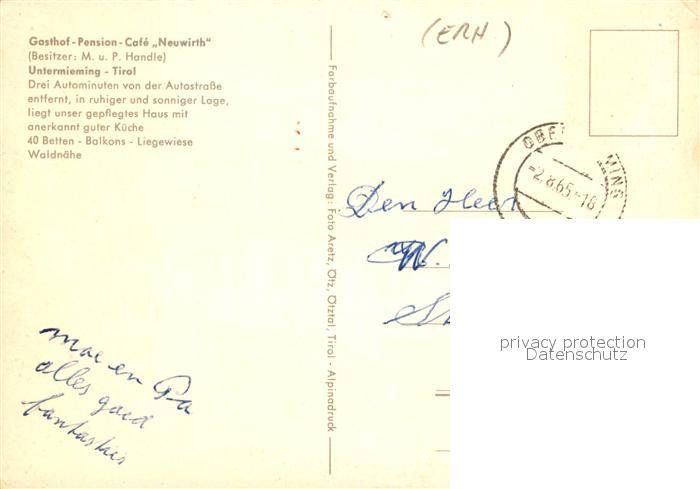 Gasthof-Pension-Café „Neuwirth"
(Besitzer: M. u. P. Handle)
Untermieming - Tirol
Drei Autominuten von der Autostraße
entfernt, in ruhiger und sonniger Lage,
liegt unser gepflegtes Haus mit
anerkannt guter Küche
40 Betten - Balkons - Liegewiese
Waldnähe
moe en Pa
alles goed
fantasties
Farbaufnahme und Verlag: Foto Aretz, Ötz, Ötztal, Tirol - Alpinadruck
(ERH)
-2.8.65.-18
Den Heer
W.
privacy protection
Datenschutz